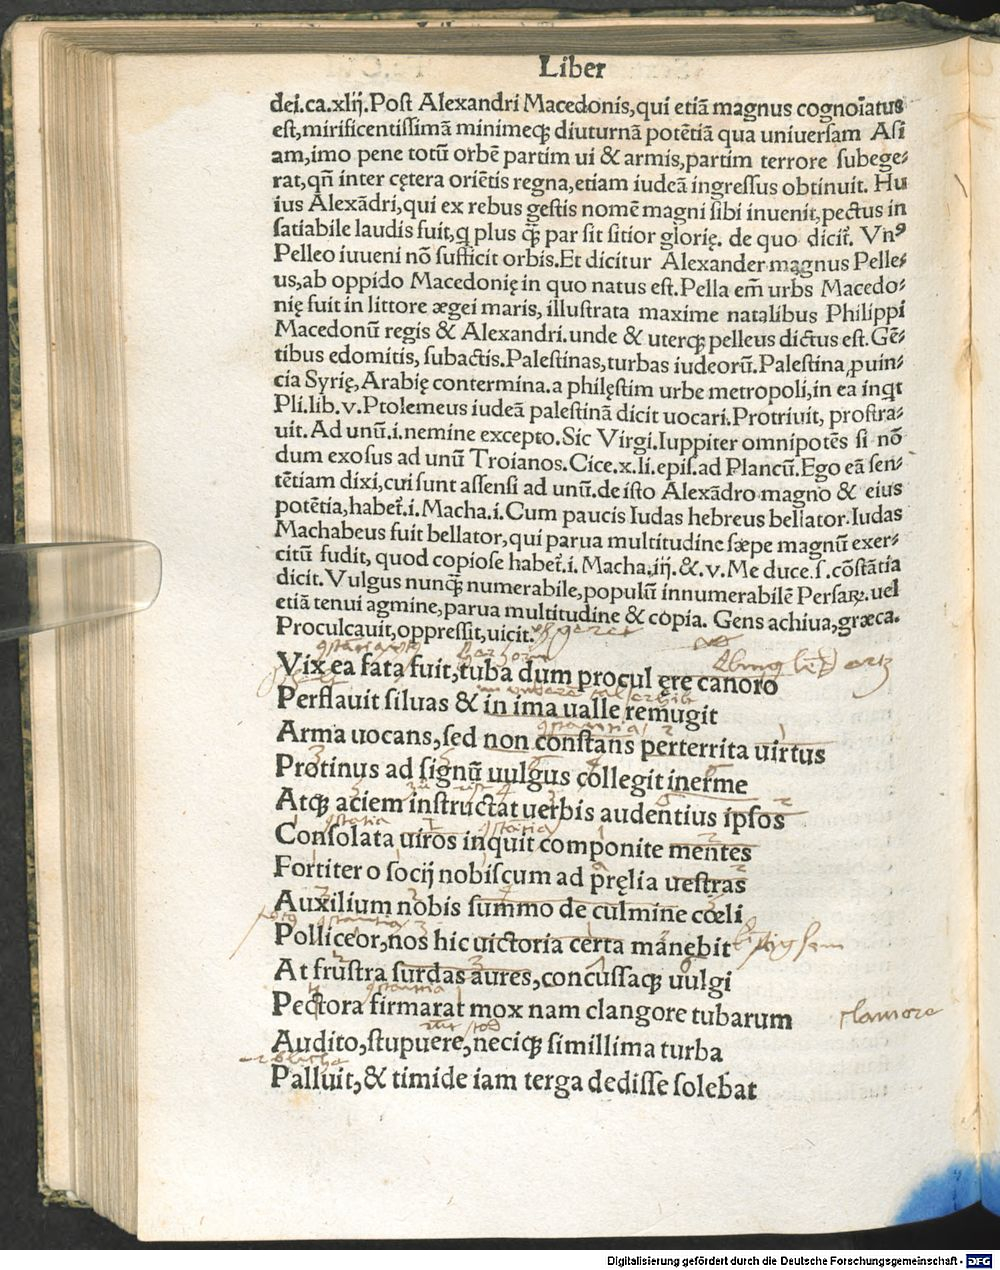 Liber
dei.ca.xlij.Post Alexandri Macedonis,qui etiā magnus cognoīatus
est,mirificentissimā minimeqꝫ diuturnā potētiā qua uniuersam Asi
am,imo pene totū orbē partim ui & armis,partim terrore subege-
rat,qn̄ inter cętera oriētis regna,etiam iudeā ingressus obtinuit. Hu
ius Alexādri,qui ex rebus gestis nomē magni sibi inuenit,pectus in
satiabile laudis fuit,q plus q̄ꝫ par sit sitior glorię. de quo dicit̄. Vnꝰ
Pelleo iuueni nō sufficit orbis.Et dicitur Alexander magnus Pelle-
us,ab oppido Macedonię in quo natus est.Pella em̄ urbs Macedo-
nię fuit in littore ægei maris, illustrata maxime natalibus Philippi
Macedonū regis & Alexandri.unde & uterqꝫ pelleus dictus est. Gē-
tibus edomitis, subactis.Palestinas,turbas iudeorū.Palestina,ꝓuin-
cia Syrię,Arabię contermina.a philęstim urbe metropoli,in ea inqt
Pli.lib.v.Ptolemeus iudeā palestinā dicit uocari.Protriuit, prostra-
uit. Ad unū.i.nemine excepto.Sic Virgi.Iuppiter omnipotēs si nō
dum exosus ad unū Troianos.Cice.x.li.epis.ad Plancū.Ego eā sen-
tētiam dixi,cui sunt assensi ad unū.de isto Alexādro magno & eius
potētia,habet̄.i.Macha.i.Cum paucis Iudas hebreus bellator.Iudas
Machabeus fuit bellator,qui parua multitudine sæpe magnū exer-
citū fudit, quod copiose habet̄.i. Macha.iij.&.v.Me duce.s.cōstātia
dicit.Vulgus nunq̄ꝫ numerabile,populū innumerabilē Persaꝝ.uel
etiā tenui agmine,parua multitudine & copia. Gens achiua,græca.
Proculcauit,oppressit,uicit.
Vix ea fata fuit,tuba dum procul ęre canoro
Perflauit siluas & in ima ualle remugit
Arma uocans,sed non constans perterrita uirtus
Protinus ad signū uulgus collegit inerme
Atqꝫ aciem instructat uerbis audentius ipsos
Consolata uiros inquit componite mentes
Fortiter o socij nobiscum ad pręlia uestras
Auxilium nobis summo de culmine cœli
Polliceor,nos hic uictoria certa manebit
At frustra surdas aures,concussaqꝫ uulgi
Pectora firmarat mox nam clangore tubarum clamore
Audito,stupuere,neciqꝫ simillima turba
Palluit,& timide iam terga dedisse solebat
Digitalisierung gefördert durch die Deutsche Forschungsgemeinschaft - DFG